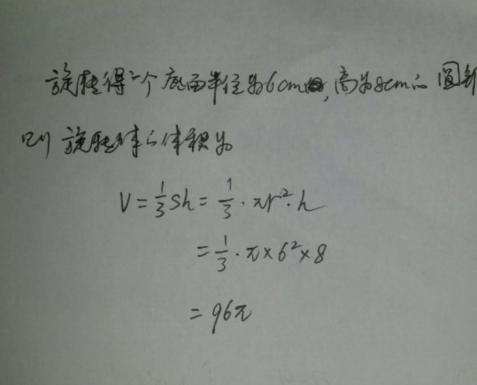 旋转得一个底面半径为6cm,高为8cm的圆锥
则旋转体的体积为
V=1/3Sh=1/3·πr²·h
=1/3·π×6²×8
=96π